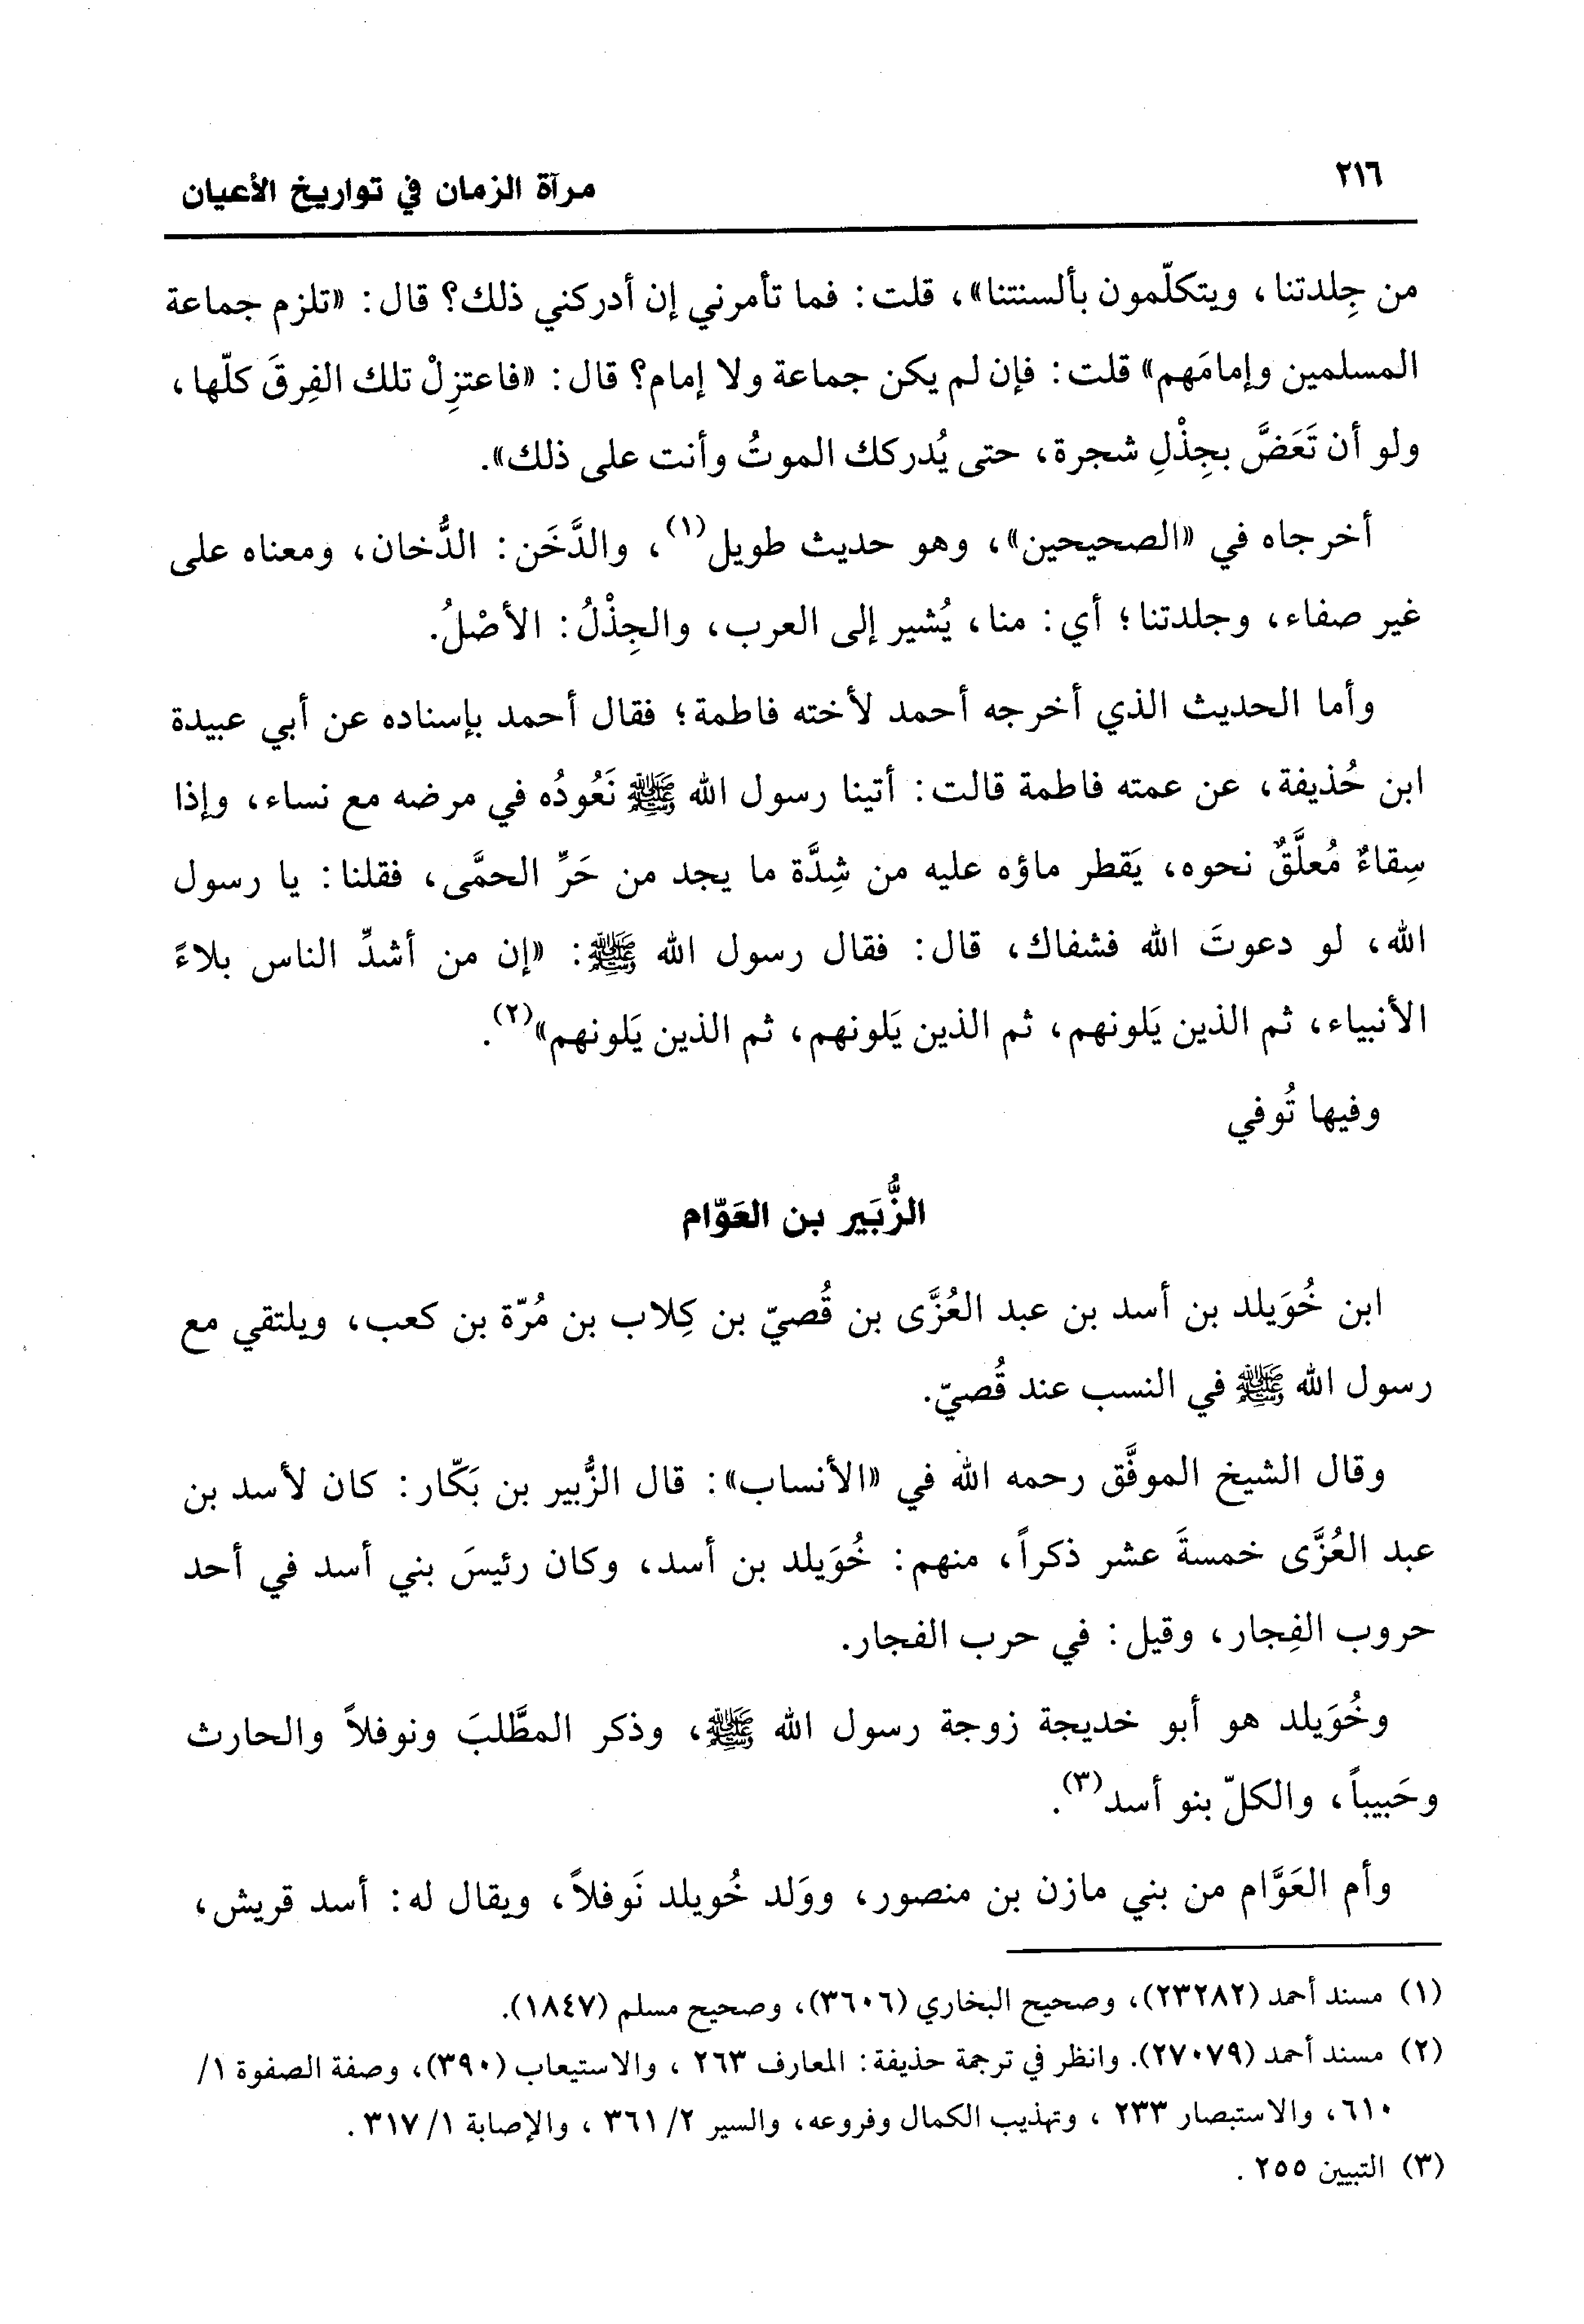 ٢١٦
مرآة الزمان في تواريخ الأعيان
من جِلدتنا، ويتكلّمون بألسنتنا»، قلت: فما تأمرني إن أدركني ذلك؟ قال: «تلزم جماعة
المسلمين وإمامَهم» قلت: فإن لم يكن جماعة ولا إمام؟ قال: «فاعتزِلْ تلك الفِرقَ كلّها،
ولو أن تَعَضَّ بجِذْلِ شجرة، حتى يُدركك الموتُ وأنت على ذلك».
أخرجاه في «الصحيحين»، وهو حديث طويل(١)، والدَّخَن: الدُّخان، ومعناه على
غير صفاء، وجلدتنا؛ أي: منا، يُشير إلى العرب، والجِذْلُ: الأصْلُ.
وأما الحديث الذي أخرجه أحمد لأخته فاطمة؛ فقال أحمد بإسناده عن أبي عبيدة
ابن حُذيفة، عن عمته فاطمة قالت: أتينا رسول الله ﷺ نَعُودُه في مرضه مع نساء، وإذا
سِقاءٌ مُعلَّقٌ نحوه، يَقطر ماؤه عليه من شِدَّة ما يجد من حَرِّ الحمَّى، فقلنا: يا رسول
الله، لو دعوتَ الله فشفاك، قال: فقال رسول الله ﷺ: «إن من أشدِّ الناس بلاءً
الأنبياء، ثم الذين يَلونهم، ثم الذين يَلونهم، ثم الذين يَلونهم»(٢).
وفيها تُوفي
الزُّبَير بن العَوّام
ابن خُوَيلد بن أسد بن عبد العُزَّى بن قُصيّ بن كِلاب بن مُرّة بن كعب، ويلتقي مع
رسول الله ﷺ في النسب عند قُصيّ.
وقال الشيخ الموفَّق رحمه الله في «الأنساب»: قال الزُّبير بن بَكّار: كان لأسد بن
عبد العُزَّى خمسةَ عشر ذكراً، منهم: خُوَيلد بن أسد، وكان رئيسَ بني أسد في أحد
حروب الفِجار، وقيل: في حرب الفجار.
وخُوَيلد هو أبو خديجة زوجة رسول الله ﷺ، وذكر المطَّلبَ ونوفلاً والحارث
وحَبيباً، والكلّ بنو أسد(٣).
وأم العَوَّام من بني مازن بن منصور، ووَلد خُويلد نَوفلاً، ويقال له: أسد قريش،
(١) مسند أحمد (٢٣٢٨٢)، وصحيح البخاري (٣٦٠٦)، وصحيح مسلم (١٨٤٧).
(٢) مسند أحمد (٢٧٠٧٩). وانظر في ترجمة حذيفة: المعارف ٢٦٣ ، والاستيعاب (٣٩٠)، وصفة الصفوة ١/
٦١٠، والاستبصار ٢٣٣ ، وتهذيب الكمال وفروعه، والسير ٢/ ٣٦١ ، والإصابة ١/ ٣١٧ .
(٣) التبيين ٢٥٥ .